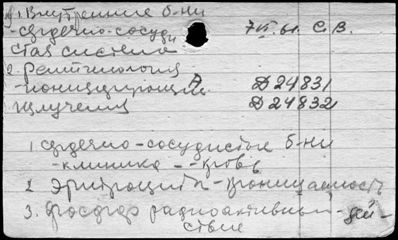 1. Внутренние б-ни
-сердечно-сосуди
стая система
7/VII.61. С. В.
2. Рентгенология
-ионизирующие
излучения
Д 24831
Д 24832
1 сердечно-сосудистые б-ни
-клиника -- кровь
2 Эритроциты - проницаемость
3. фосфор радиоактивный - дей-
ствие